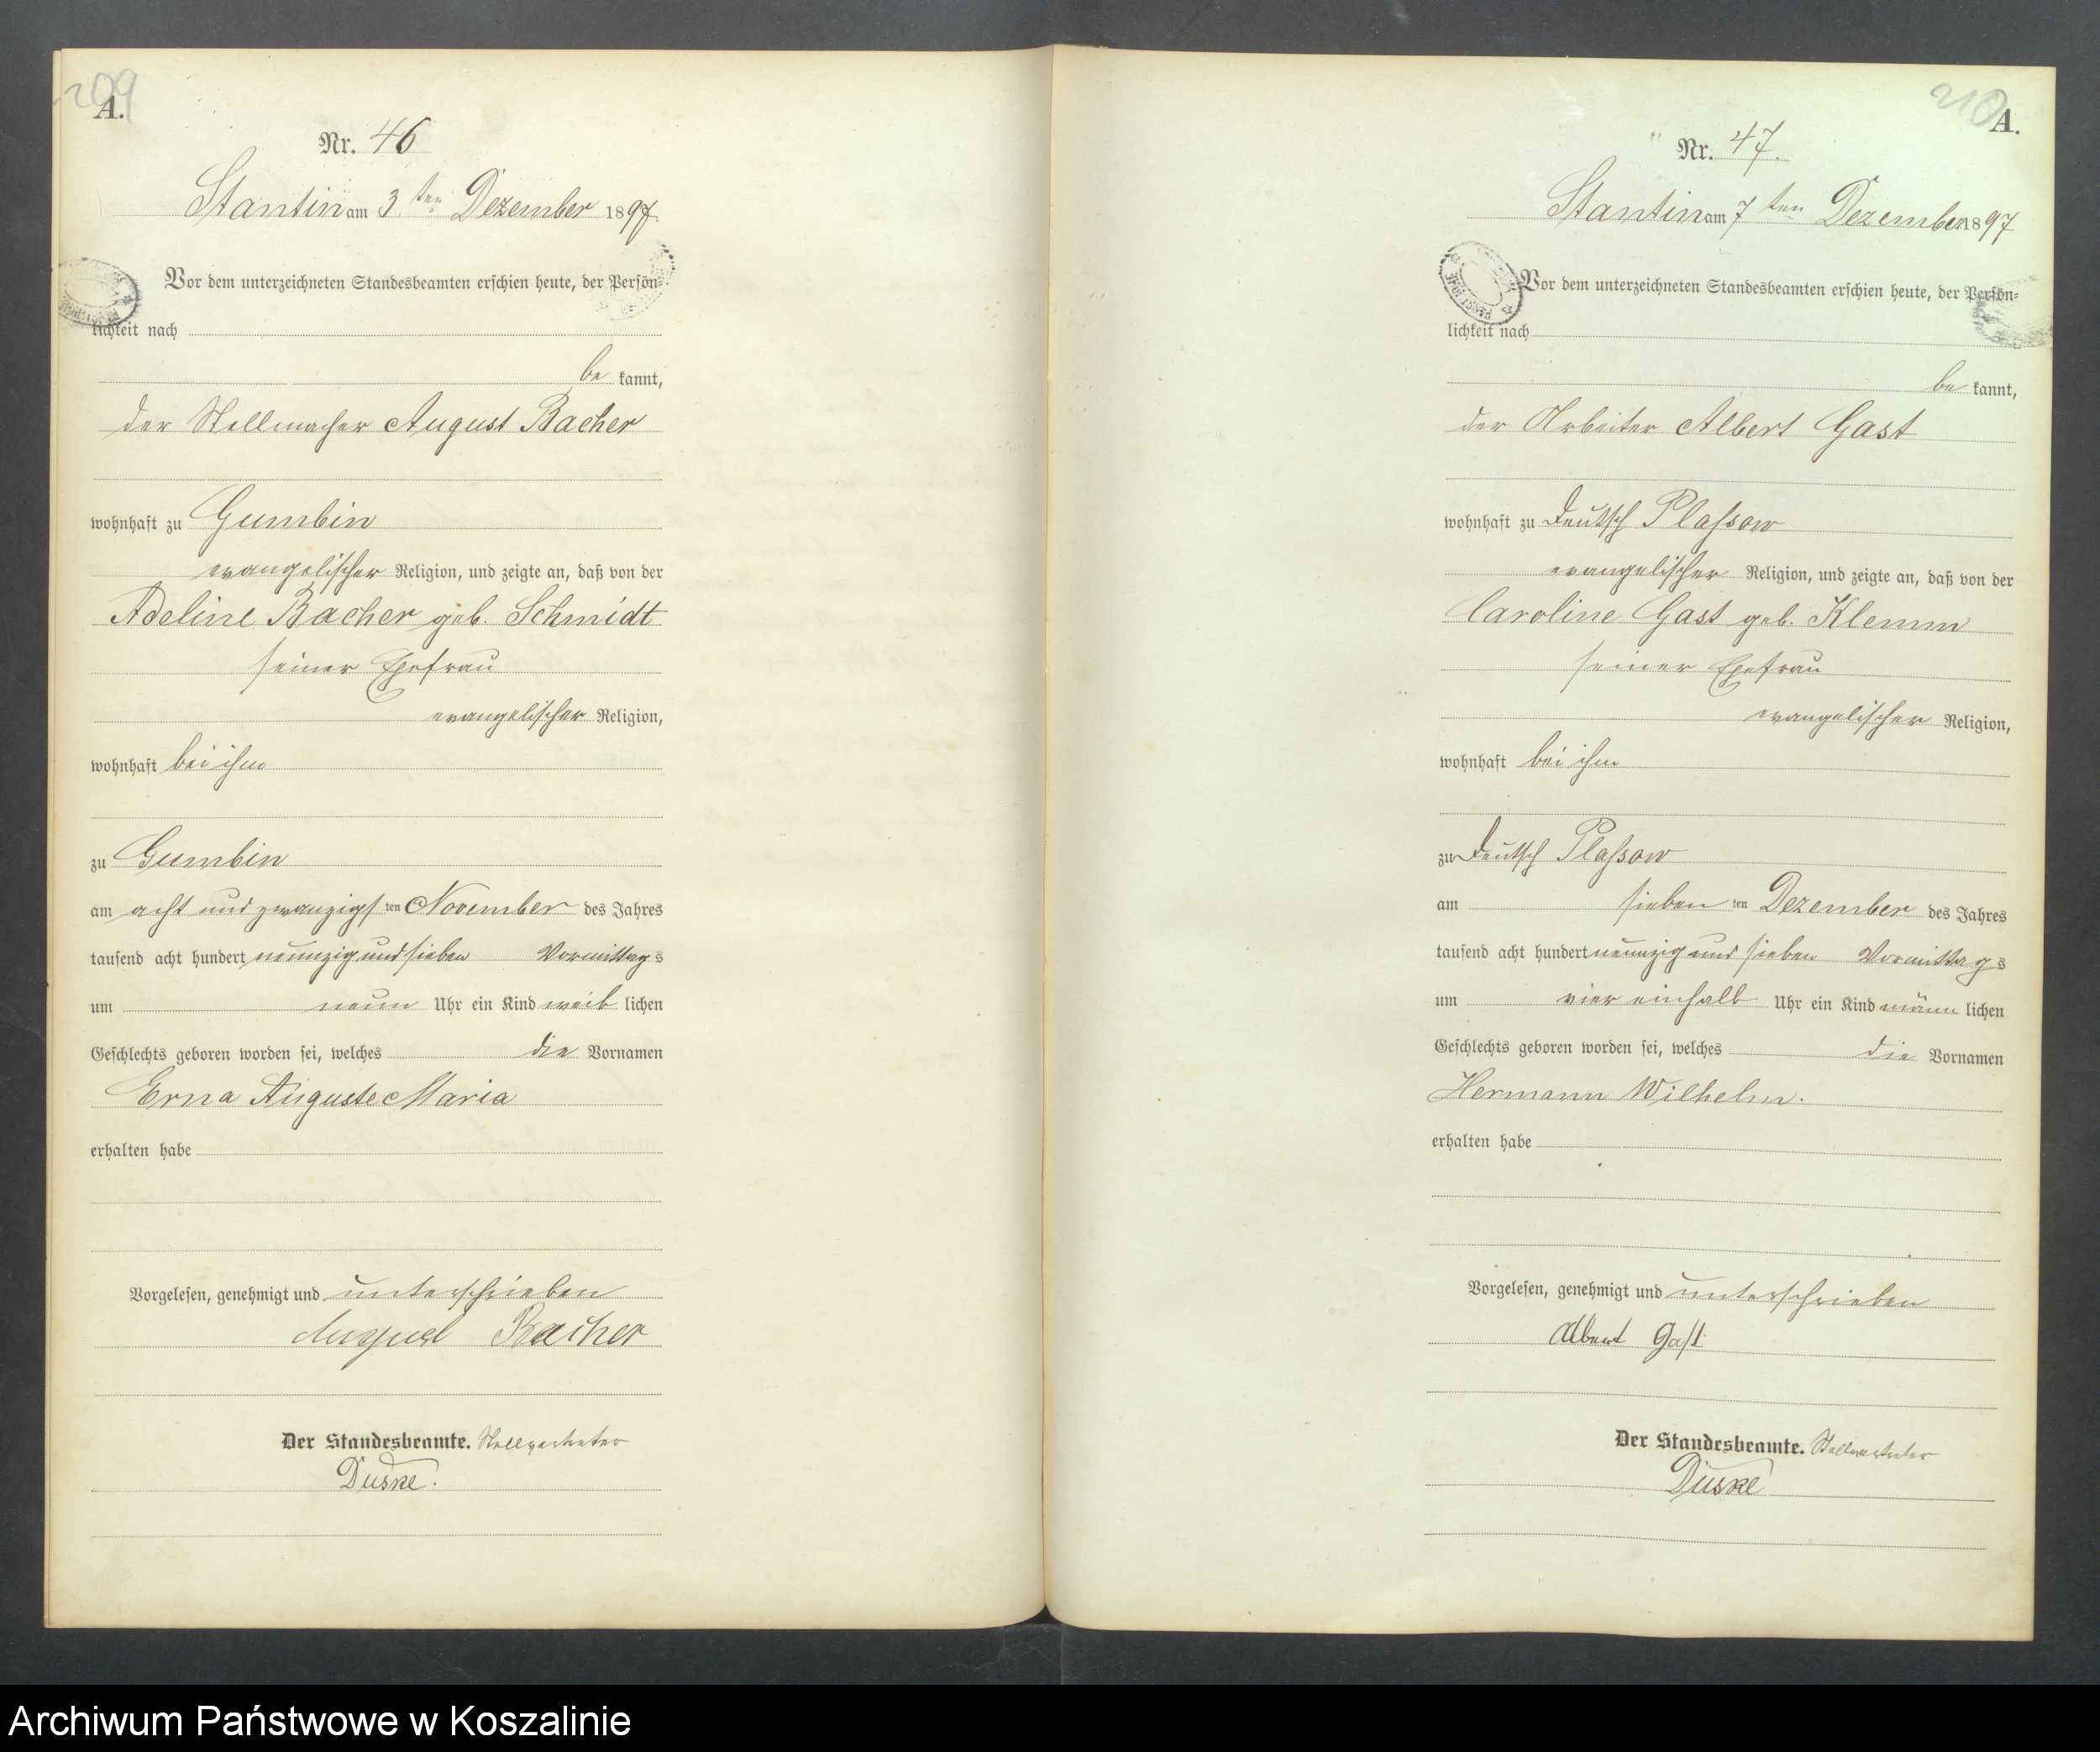 209
A.
Nr. 46
Stantin am 3ten Dezember 1897.
Vor dem unterzeichneten Standesbeamten erschien heute, der Persön-
lichkeit nach
be kannt,
der Stellmacher August Bacher
wohnhaft zu Gumbin
evangelischer Religion, und zeigte an, daß von der
Adeline Bacher geb. Schmidt
seiner Ehefrau
evangelischer Religion,
wohnhaft bei ihm
zu Gumbin
am acht und zwanzigsten November des Jahres
tausend acht hundert neunzig und sieben Vormittags
um neun Uhr ein Kind weiblichen
Geschlechts geboren worden sei, welches die Vornamen
Erna Auguste Maria
erhalten habe
Vorgelesen, genehmigt und unterschrieben
August Bacher
Der Standesbeamte. Stellvertreter
Duske.
210
A.
Nr. 47.
Stantin am 7ten Dezember 1897
Vor dem unterzeichneten Standesbeamten erschien heute, der Persön-
lichkeit nach
be kannt,
der Arbeiter Albert Gast
wohnhaft zu Deutsch Plassow
evangelischer Religion, und zeigte an, daß von der
Caroline Gast geb. Klemm
seiner Ehefrau
evangelischer Religion,
wohnhaft bei ihm
zu Deutsch Plassow
am siebenten Dezember des Jahres
tausend acht hundert neunzig und sieben Vormittags
um vier einhalb Uhr ein Kind männlichen
Geschlechts geboren worden sei, welches die Vornamen
Hermann Wilhelm.
erhalten habe
Vorgelesen, genehmigt und unterschrieben
Albert Gast
Der Standesbeamte. Stellvertreter
Duske
Archiwum Państwowe w Koszalinie